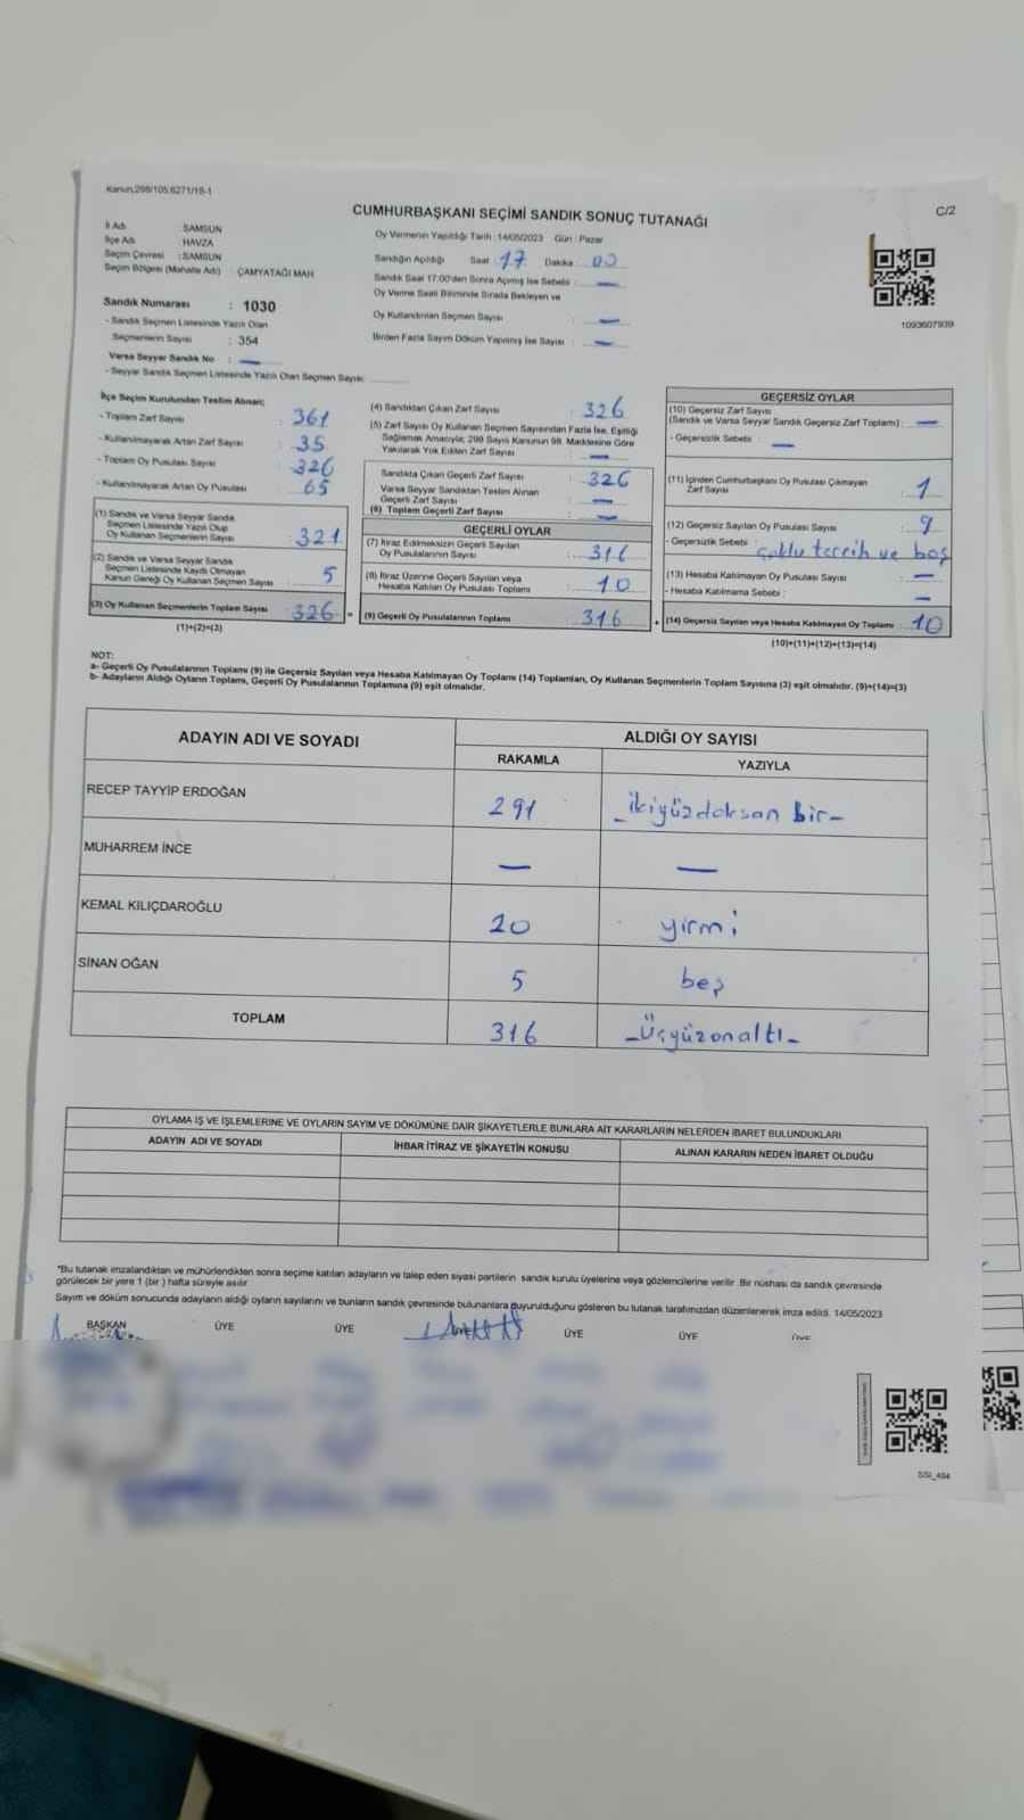 Kanun:298/105;6271/18-1
C/2
CUMHURBAŞKANI SEÇİMİ SANDIK SONUÇ TUTANAĞI
İl Adı SAMSUN
İlçe Adı HAVZA
Seçim Çevresi : SAMSUN
Seçim Bölgesi (Mahalle Adı) : ÇAMYATAĞI MAH.
Oy Vermenin Yapıldığı Tarih : 14/05/2023 Gün : Pazar
Sandığın Açıldığı Saat : 17 Dakika 00
Sandık Saat 17:00'den Sonra Açılmış İse Sebebi : —
Oy Verme Saati Bitiminde Sırada Bekleyen ve
Oy Kullandırılan Seçmen Sayısı : —
Birden Fazla Sayım Döküm Yapılmış İse Sayısı : —
1093607939
Sandık Numarası : 1030
- Sandık Seçmen Listesinde Yazılı Olan
Seçmenlerin Sayısı : 354
Varsa Seyyar Sandık No : —
- Seyyar Sandık Seçmen Listesinde Yazılı Olan Seçmen Sayısı:
İlçe Seçim Kurulundan Teslim Alınan;
- Toplam Zarf Sayısı : 361
- Kullanılmayarak Artan Zarf Sayısı : 35
- Toplam Oy Pusulası Sayısı : 326
- Kullanılmayarak Artan Oy Pusulası : 65
(1) Sandık ve Varsa Seyyar Sandık
Seçmen Listesinde Yazılı Olup
Oy Kullanan Seçmenlerin Sayısı : 321
(2) Sandık ve Varsa Seyyar Sandık
Seçmen Listesinde Kaydı Olmayan
Kanun Gereği Oy Kullanan Seçmen Sayısı 5
(3) Oy Kullanan Seçmenlerin Toplam Sayısı 326 =
(1)+(2)=(3)
(4) Sandıktan Çıkan Zarf Sayısı : 326
(5) Zarf Sayısı Oy Kullanan Seçmen Sayısından Fazla İse, Eşitliği
Sağlamak Amacıyla; 298 Sayılı Kanunun 98. Maddesine Göre
Yakılarak Yok Edilen Zarf Sayısı : —
Sandıkta Çıkan Geçerli Zarf Sayısı : 326
Varsa Seyyar Sandıktan Teslim Alınan
Geçerli Zarf Sayısı : —
(6) Toplam Geçerli Zarf Sayısı : —
GEÇERLİ OYLAR
(7) İtiraz Edilmeksizin Geçerli Sayılan
Oy Pusulalarının Sayısı : 316
(8) İtiraz Üzerine Geçerli Sayılan veya
Hesaba Katılan Oy Pusulaları Toplamı : 10
(9) Geçerli Oy Pusulalarının Toplamı : 316 +
GEÇERSİZ OYLAR
(10) Geçersiz Zarf Sayısı
(Sandık ve Varsa Seyyar Sandık Geçersiz Zarf Toplamı) : —
- Geçersizlik Sebebi : —
(11) İçinden Cumhurbaşkanı Oy Pusulası Çıkmayan
Zarf Sayısı : 1
(12) Geçersiz Sayılan Oy Pusulası Sayısı : 9
- Geçersizlik Sebebi : çoklu tercih ve boş
(13) Hesaba Katılmayan Oy Pusulası Sayısı : —
- Hesaba Katılmama Sebebi : —
(14) Geçersiz Sayılan veya Hesaba Katılmayan Oy Toplamı : 10
(10)+(11)+(12)+(13)=(14)
NOT:
a- Geçerli Oy Pusulalarının Toplamı (9) ile Geçersiz Sayılan veya Hesaba Katılmayan Oy Toplamı (14) Toplamları, Oy Kullanan Seçmenlerin Toplam Sayısına (3) eşit olmalıdır. (9)+(14)=(3)
b- Adayların Aldığı Oyların Toplamı, Geçerli Oy Pusulalarının Toplamına (9) eşit olmalıdır.
ADAYIN ADI VE SOYADI
ALDIĞI OY SAYISI
RAKAMLA YAZIYLA
RECEP TAYYİP ERDOĞAN 291 –ikiyüzdoksan bir–
MUHARREM İNCE — —
KEMAL KILIÇDAROĞLU 20 yirmi
SİNAN OĞAN 5 beş
TOPLAM 316 –Üçyüzonaltı–
OYLAMA İŞ VE İŞLEMLERİNE VE OYLARIN SAYIM VE DÖKÜMÜNE DAİR ŞİKAYETLERLE BUNLARA AİT KARARLARIN NELERDEN İBARET BULUNDUKLARI
ADAYIN ADI VE SOYADI İHBAR İTİRAZ VE ŞİKAYETİN KONUSU ALINAN KARARIN NEDEN İBARET OLDUĞU
*Bu tutanak imzalandıktan ve mühürlendikten sonra seçime katılan adayların ve talep eden siyasi partilerin sandık kurulu üyelerine veya gözlemcilerine verilir. Bir nüshası da sandık çevresinde
görülecek bir yere 1 (bir ) hafta süreyle asılır.
Sayım ve döküm sonucunda adayların aldığı oyların sayılarını ve bunların sandık çevresinde bulunanlara duyurulduğunu gösteren bu tutanak tarafımızdan düzenlenerek imza edildi. 14/05/2023
BAŞKAN ÜYE ÜYE ÜYE ÜYE ÜYE
SSI_484